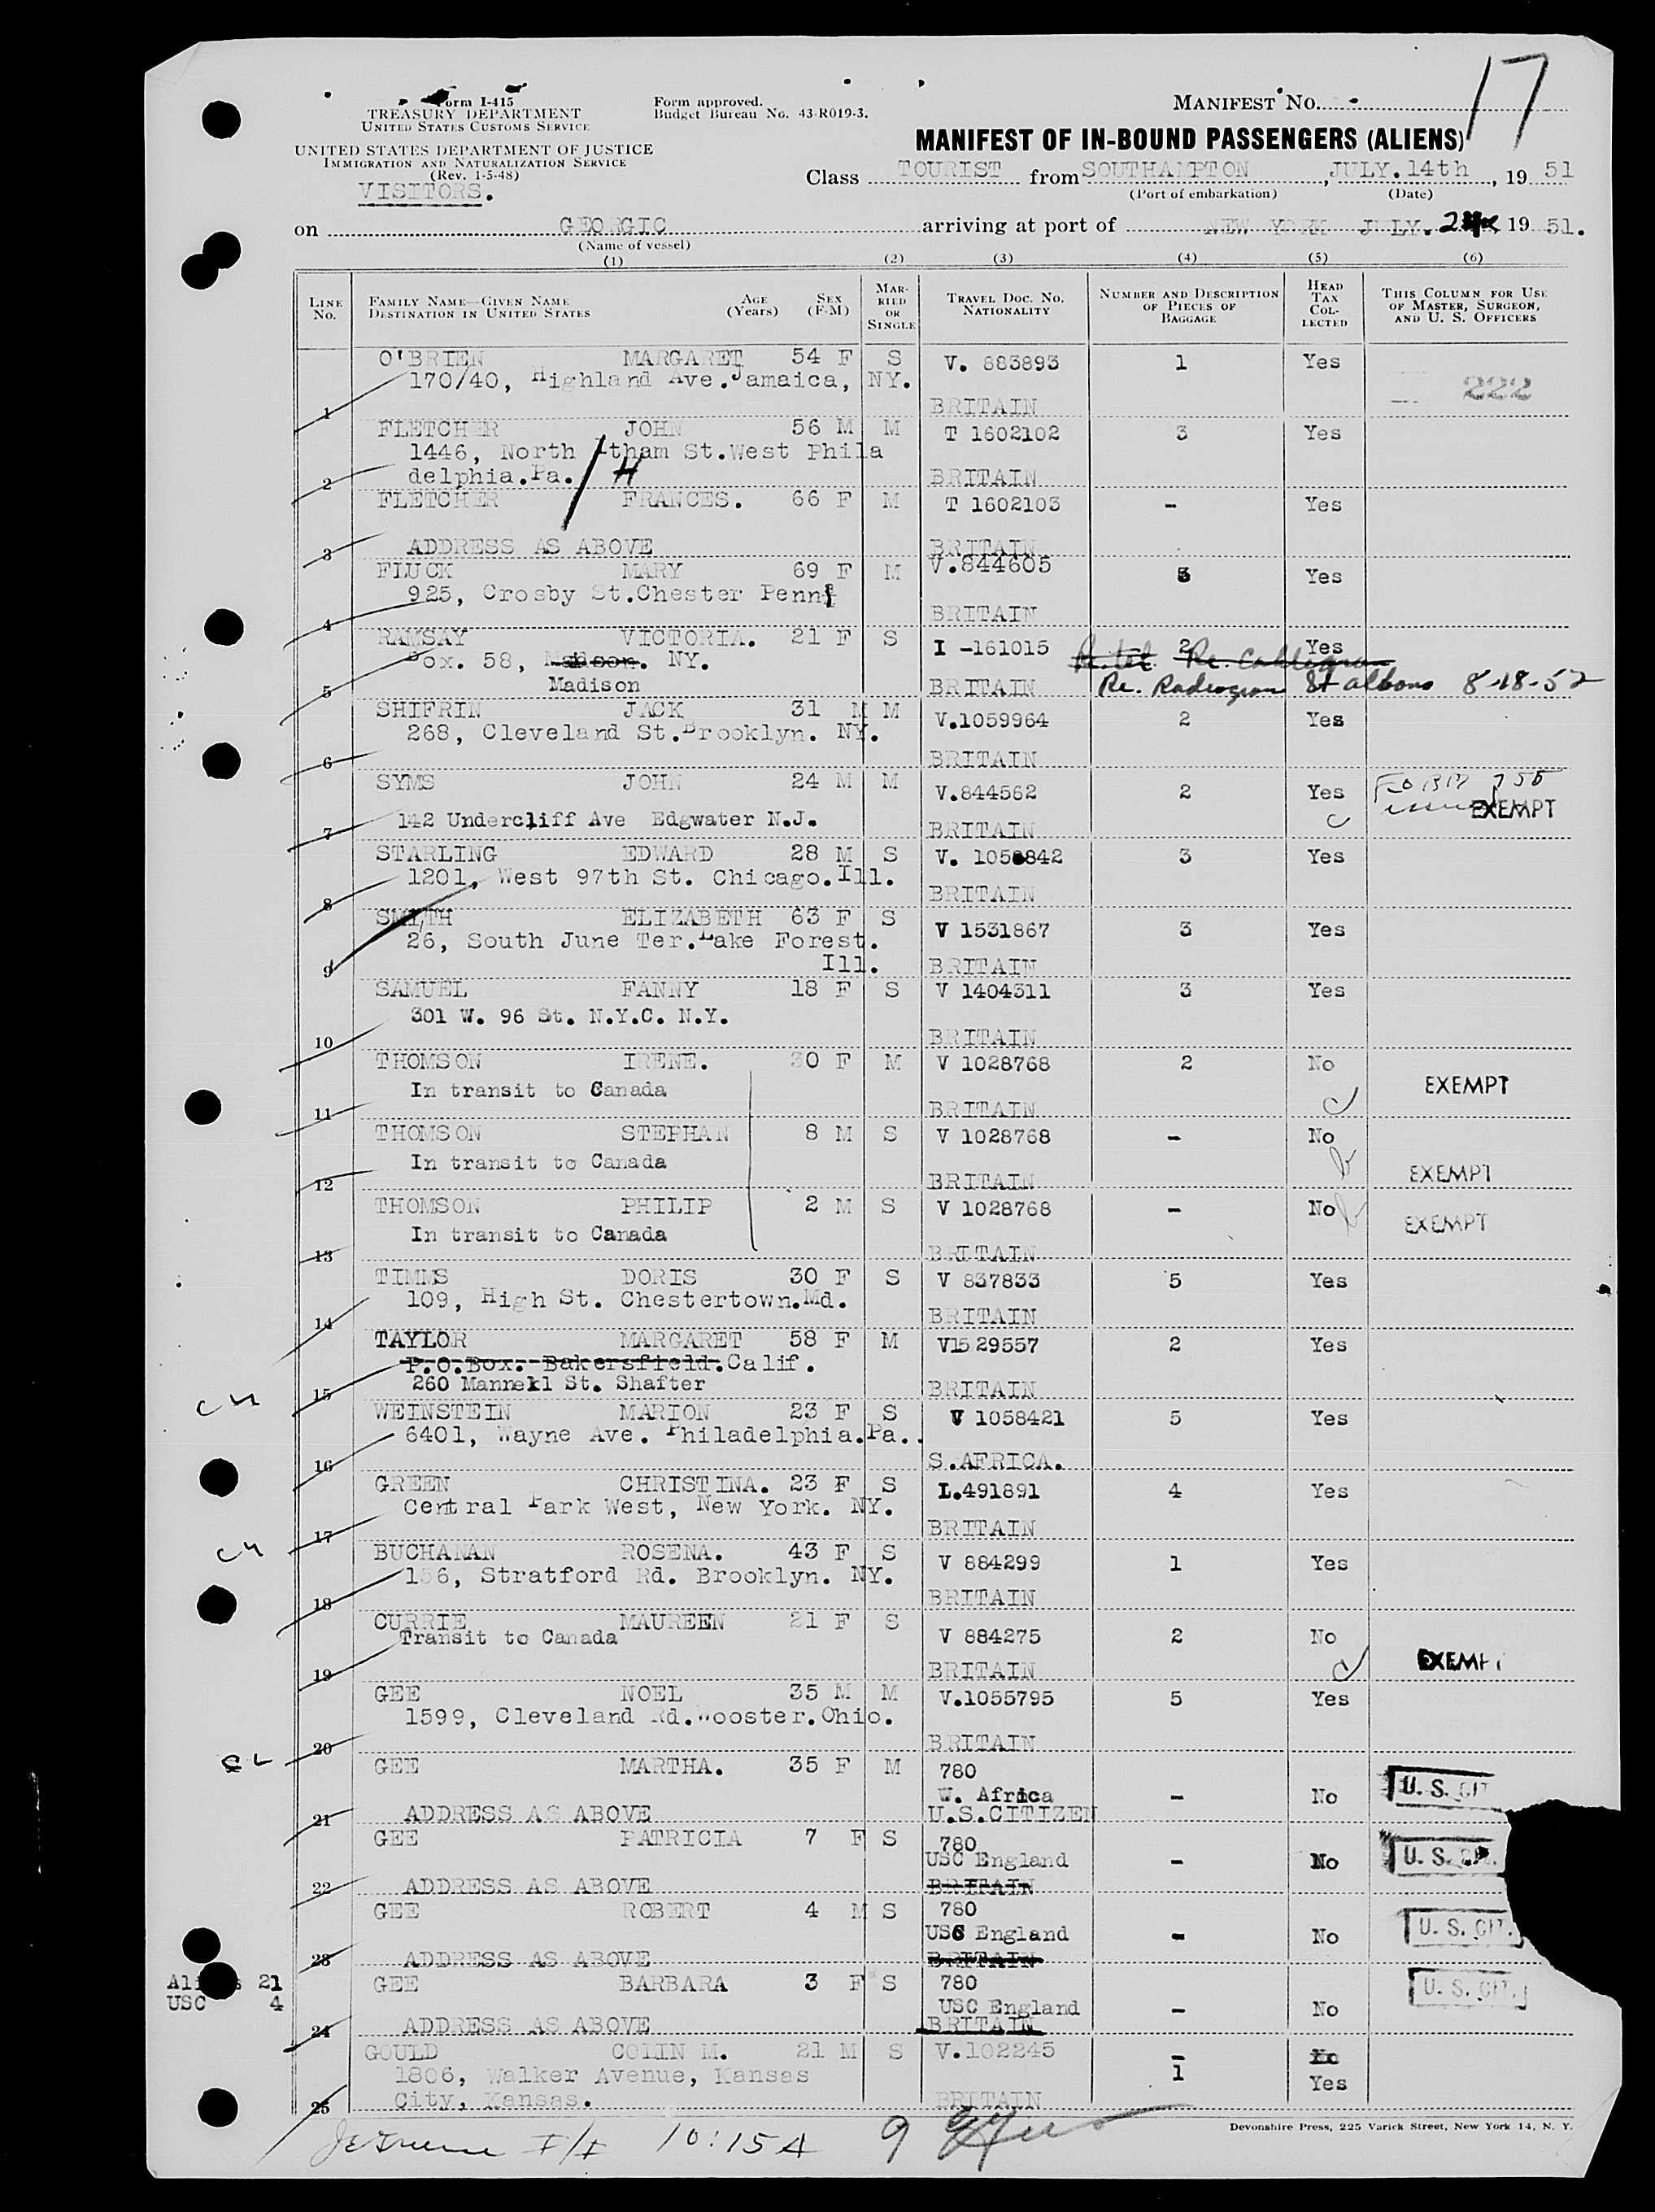 17
Form I-415
TREASURY DEPARTMENT
UNITED STATES CUSTOMS SERVICE
Form approved.
Budget Bureau No. 43-R019-3.
MANIFEST NO.
UNITED STATES DEPARTMENT OF JUSTICE
IMMIGRATION AND NATURALIZATION SERVICE
(Rev. 1-5-48)
VISITORS.
MANIFEST OF IN-BOUND PASSENGERS (ALIENS)
Class TOURIST from SOUTHAMPTON, JULY.14th, 19 51
(Port of embarkation) (Date)
on GEORGIC arriving at port of NEW YORK JULY. 19 51.
(Name of vessel)
(1) (2) (3) (4) (5) (6)
LINE NO. FAMILY NAME—GIVEN NAME DESTINATION IN UNITED STATES AGE (Years) SEX (F-M) MARRIED OR SINGLE TRAVEL DOC. NO. NATIONALITY NUMBER AND DESCRIPTION OF PIECES OF BAGGAGE HEAD TAX COLLECTED THIS COLUMN FOR USE OF MASTER, SURGEON, AND U. S. OFFICERS
O'BRIEN MARGARET 54 F S V. 883893 1 Yes
170/40, Highland Ave.Jamaica, NY. 222
1 BRITAIN
FLETCHER JOHN 56 M M T 1602102 3 Yes
1446, North tham St.West Phila
H
2 delphia.Pa. BRITAIN
FLETCHER FRANCES. 66 F M T 1602103 - Yes
3 ADDRESS AS ABOVE BRITAIN
FLUCK MARY 69 F M V.844605 Yes
925, Crosby St.Chester Penn
4 BRITAIN
RAMSAY VICTORIA. 21 F S I -161015 2 Yes
Box. 58, NY.
5 Madison BRITAIN Re. Radiogram St Albans 8-18-52
SHIFRIN JACK 31 M M V.1059964 2 Yes
268, Cleveland St.Brooklyn. NY.
6 BRITAIN
SYMS JOHN 24 M M V.844562 2 Yes FORM
issued EXEMPT
7 142 Undercliff Ave Edgwater N.J. BRITAIN
STARLING EDWARD 28 M S V. 3 Yes
1201, West 97th St. Chicago.Ill.
8 BRITAIN
SMITH ELIZABETH 63 F S V 1531867 3 Yes
26, South June Ter.Lake Forest.
9 Ill. BRITAIN
SAMUEL FANNY 18 F S V 1404311 3 Yes
301 W. 96 St. N.Y.C. N.Y.
10 BRITAIN
THOMSON IRENE. 30 F M V 1028768 2 No
In transit to Canada EXEMPT
11 BRITAIN
THOMSON STEPHAN 8 M S V 1028768 - No
In transit to Canada EXEMPT
12 BRITAIN
THOMSON PHILIP 2 M S V 1028768 - No
In transit to Canada EXEMPT
13 BRITAIN
TIMMS DORIS 30 F S V 837833 5 Yes
109, High St. Chestertown.Md.
14 BRITAIN
TAYLOR MARGARET 58 F M V1529557 2 Yes
P.O.Box. Bakersfield.Calif.
15 260 St. Shafter BRITAIN
WEINSTEIN MARION 23 F S V 1058421 5 Yes
6401, Wayne Ave. Philadelphia.Pa..
16 S.AFRICA.
GREEN CHRISTINA. 23 F S L.491891 4 Yes
Central Park West, New York. NY.
17 BRITAIN
BUCHANAN ROSENA. 43 F S V 884299 1 Yes
Stratford Rd. Brooklyn. NY.
18 BRITAIN
CURRIE MAUREEN 21 F S V 884275 2 No
Transit to Canada EXEMPT
19 BRITAIN
GEE NOEL 35 M M V.1055795 5 Yes
1599, Cleveland Rd.Wooster.Ohio.
20 BRITAIN
GEE MARTHA. 35 F M 780
W. Africa - No U. S. CIT
21 ADDRESS AS ABOVE U.S.CITIZEN
GEE PATRICIA 7 F S 780
USC England - No U. S.
22 ADDRESS AS ABOVE BRITAIN
GEE ROBERT 4 M S 780
USC England - No U. S. CIT.
23 ADDRESS AS ABOVE BRITAIN
Aliens 21
USC 4
GEE BARBARA 3 F S 780
USC England - No U. S. CIT.
24 ADDRESS AS ABOVE BRITAIN
GOULD COLIN M. 21 M S V.102245 - No
1806, Walker Avenue, Kansas 1 Yes
25 City, Kansas. BRITAIN
Devonshire Press, 225 Varick Street, New York 14, N. Y.
I/I 10:15A 9